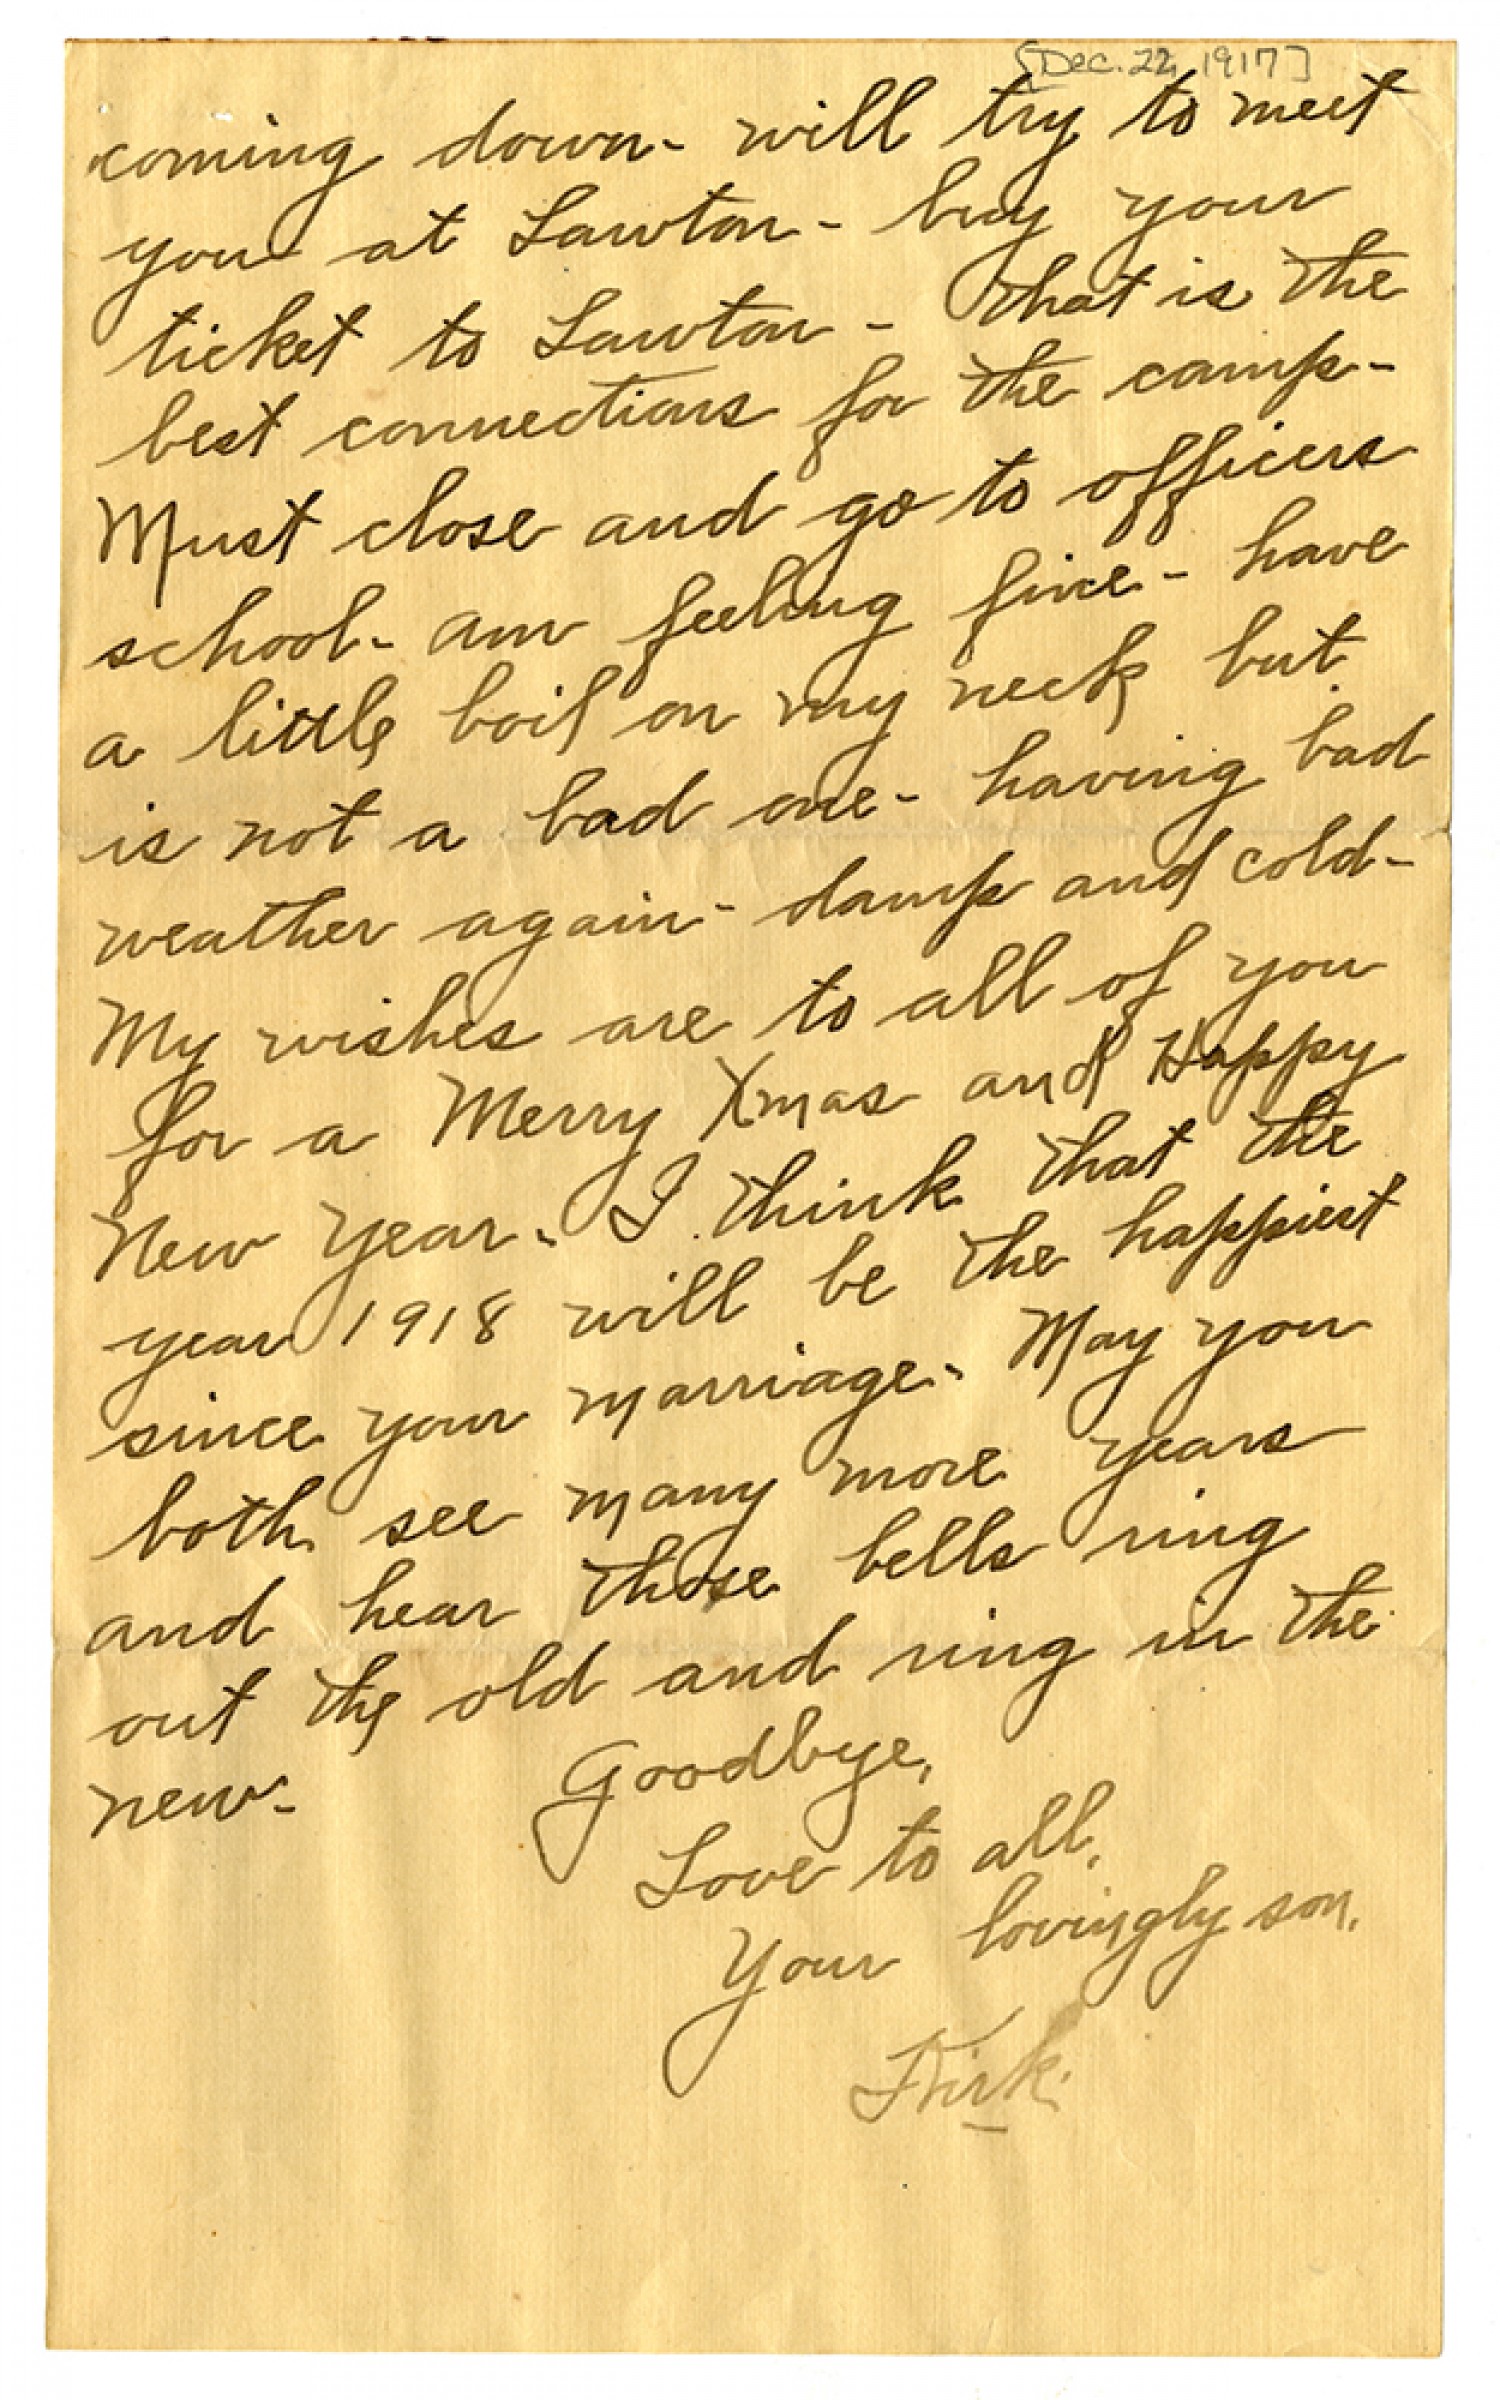 [Dec. 22, 1917]
coming down - will try to meet
you at Lawton - buy your
ticket to Lawton - that is the
best connections for the camp -
Must close and go to officers
school - am feeling fine - have
a little boil on my neck but
is not a bad one - having bad
weather again - damp and cold -
My wishes are to all of you
for a Merry Xmas and Happy
New Year. I think that the
year 1918 will be the happiest
since your marriage. May you
both see many more years
and hear those bells ring
out the old and ring in the
new -
Goodbye,
Love to all,
Your lovingly son,
Kirk.